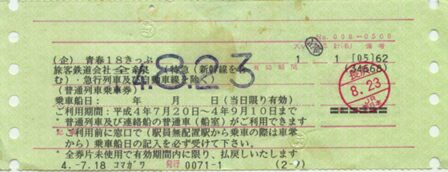 No. 008-0500
(企) 青春18きっぷ 1 1 [05]62
4.8.23
旅客鉄道会社全線 (特急(新幹線を含
む)・急行列車及び
(普通列車乗車券)
8.23
乗車船日: 年 月 日(当日限り有効)
ご利用期間:平成4年7月20日~4年9月10日まで
普通列車及び連絡船の普通車(船室)がご利用できます
ご利用前に窓口で(駅員無配置駅から乗車の際は車掌
から)乗車船日の記入を必ず受けて下さい。
全券片未使用で有効期間内に限り、払戻しいたします
4.-7.18 コマガワ 発行 0071-1 (2-ノ)